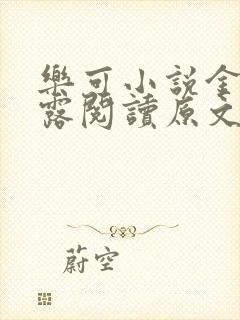 樂可小說金
露閱讀原文
蔚空